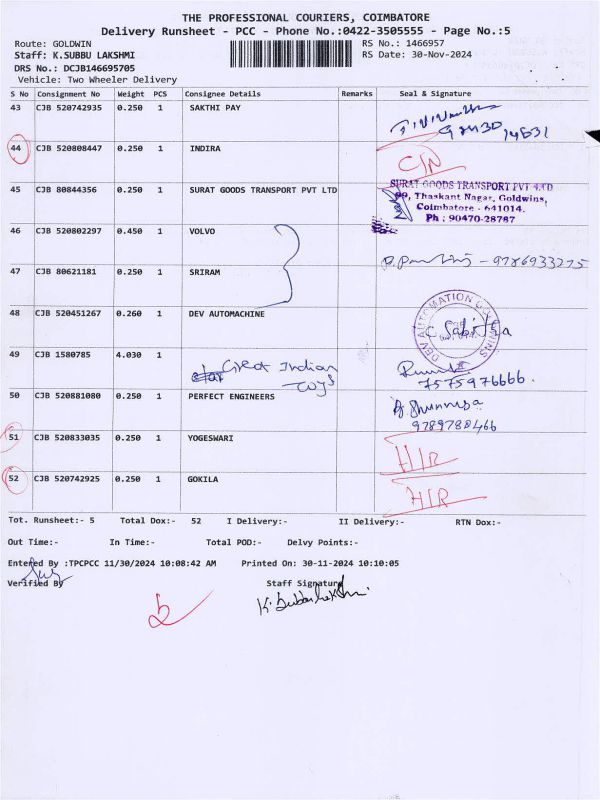 THE PROFESSIONAL COURIERS, COIMBATORE
Delivery Runsheet - PCC - Phone No.:0422-3505555 - Page No.:5
Route: GOLDWIN RS No.: 1466957
Staff: K.SUBBU LAKSHMI RS Date: 30-Nov-2024
DRS No.: DCJB146695705
Vehicle: Two Wheeler Delivery
S No Consignment No Weight PCS Consignee Details Remarks Seal & Signature
43 CJB 520742935 0.250 1 SAKTHI PAY
44 CJB 520808447 0.250 1 INDIRA C/N
45 CJB 80844356 0.250 1 SURAT GOODS TRANSPORT PVT LTD
SURAT GOODS TRANSPORT PVT LTD
99, Thaskant Nagar, Goldwins,
Coimbatore - 641014.
Ph : 90470-28787
46 CJB 520802297 0.450 1 VOLVO
47 CJB 80621181 0.250 1 SRIRAM
9786933275
48 CJB 520451267 0.260 1 DEV AUTOMACHINE
DEV AUTOMATION GOLDWINS
C. Sabitha
49 CJB 1580785 4.030 1
Great Indian
Toys
7575976666.
50 CJB 520881080 0.250 1 PERFECT ENGINEERS
9789788466
51 CJB 520833035 0.250 1 YOGESWARI H/R
52 CJB 520742925 0.250 1 GOKILA H/R
Tot. Runsheet:- 5 Total Dox:- 52 I Delivery:- II Delivery:- RTN Dox:-
Out Time:- In Time:- Total POD:- Delvy Points:-
Entered By :TPCPCC 11/30/2024 10:08:42 AM Printed On: 30-11-2024 10:10:05
Verified By Staff Signature
K. Subbulakshmi